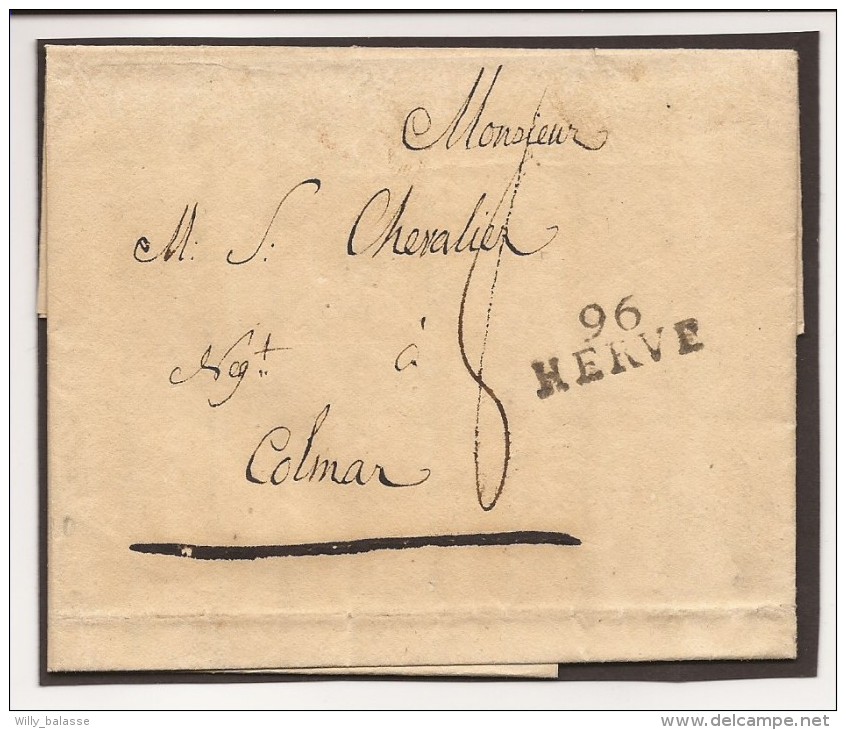 Monsieur
M. S. Chevalier
Neg.t à
Colmar
8
96
HERVE
Willy_balasse
delcampe.net